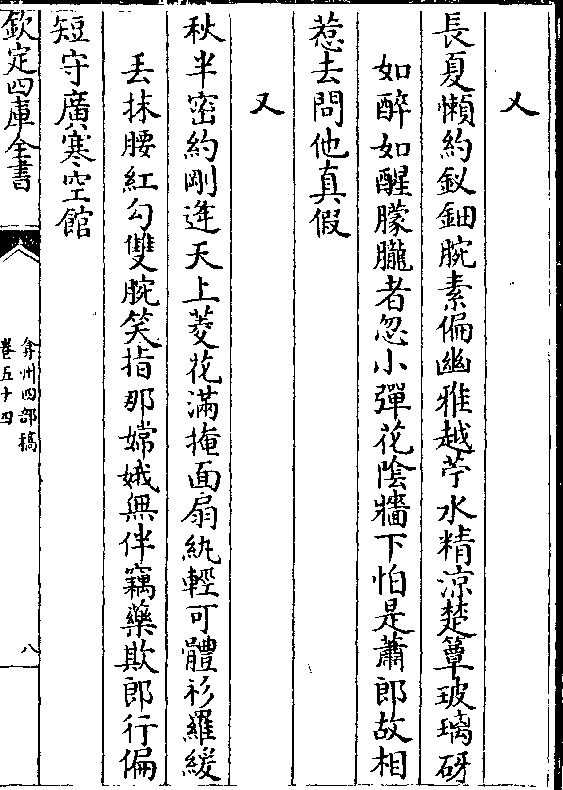 又
長夏懶約釵鈿腕素偏幽雅越苧水精涼楚簟玻璃砑
如醉如醒朦朧者忽小彈花陰牆下怕是蕭郎故相
惹去問他真假
又
秋半密約剛逢天上菱花滿掩面扇紈輕可體衫羅緩
丟抹腰紅勾雙腕笑指那嫦娥無伴竊藥欺郎行偏
短守廣寒空館
欽定四庫全書
弇州四部稿
卷五十四
八